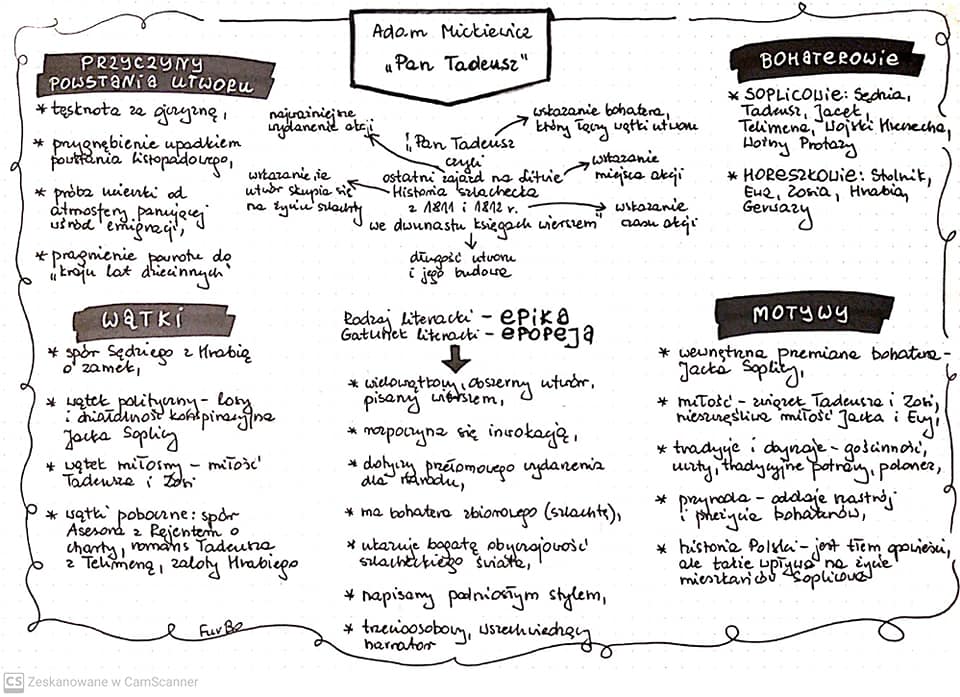 Adam Mickiewicz
„Pan Tadeusz"
PRZYCZYNY
POWSTANIA UTWORU
* tęsknota za ojczyzną,
* przygnębienie upadkiem
powstania listopadowego,
* próba ucieczki od
atmosfery panującej
wśród emigracji,
* pragnienie powrotu do
„kraju lat dziecinnych"
najważniejsze
wydarzenie akcji
wskazanie, że
utwór skupia się
na życiu szlachty
„Pan Tadeusz
czyli
ostatni zajazd na Litwie
Historia szlachecka
z 1811 i 1812 r.
we dwunastu księgach wierszem"
wskazanie bohatera,
który łączy wątki utworu
wskazanie
miejsca akcji
wskazanie
czasu akcji
długość utworu
i jego budowę
BOHATEROWIE
* SOPLICOWIE: Sędzia,
Tadeusz, Jacek,
Telimena, Wojski Hreczecha,
Woźny Protazy
* HORESZKOWIE: Stolnik,
Ewa, Zosia, Hrabia,
Gerwazy
WĄTKI
* spór Sędziego z Hrabią
o zamek,
* wątek polityczny – losy
i działalność konspiracyjna
Jacka Soplicy
* wątek miłosny – miłość
Tadeusza i Zosi
* wątki poboczne: spór
Asesora z Rejentem o
charty, romans Tadeusza
z Telimeną, zaloty Hrabiego
Rodzaj literacki – EPIKA
Gatunek literacki – EPOPEJA
* wielowątkowy, obszerny utwór,
pisany wierszem,
* rozpoczyna się inwokacją,
* dotyczy przełomowego wydarzenia
dla narodu,
* ma bohatera zbiorowego (szlachtę),
* ukazuje bogatą obyczajowość
szlacheckiego świata,
* napisany podniosłym stylem,
* trzecioosobowy, wszechwiedzący
narrator
MOTYWY
* wewnętrzna przemiana bohatera –
Jacka Soplicy,
* miłość – związek Tadeusza i Zosi,
nieszczęśliwa miłość Jacka i Ewy,
* tradycje i obyczaje – gościnność,
uczty, tradycyjne potrawy, polonez,
* przyroda – oddaje nastrój
i przeżycia bohaterów,
* historia Polski – jest tłem opowieści,
ale także wpływa na życie
mieszkańców Soplicowa
CS Zeskanowane w CamScanner